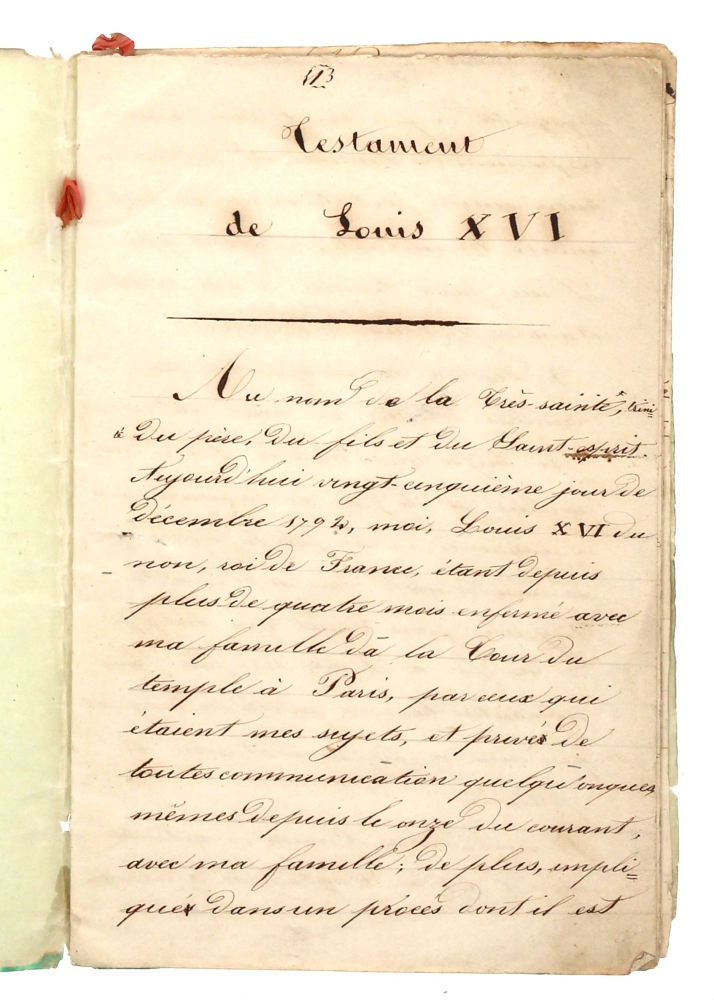 (1)
Testament
de Louis XVI
Au nom de la Très-sainte, trini=
té du père, du fils et du Saint-esprit.
Aujourd'hui vingt-cinquième jour de
décembre 1792, moi, Louis XVI du
non, roi de France, étant depuis
plus de quatre mois enfermé avec
ma famille dà la Tour du
temple à Paris, par ceux qui
étaient mes sujets, et privé de
toutes communication quelqu'onques
mêmes depuis le onze du courant,
avec ma famille; de plus, impli=
qué dans un procès dont il est